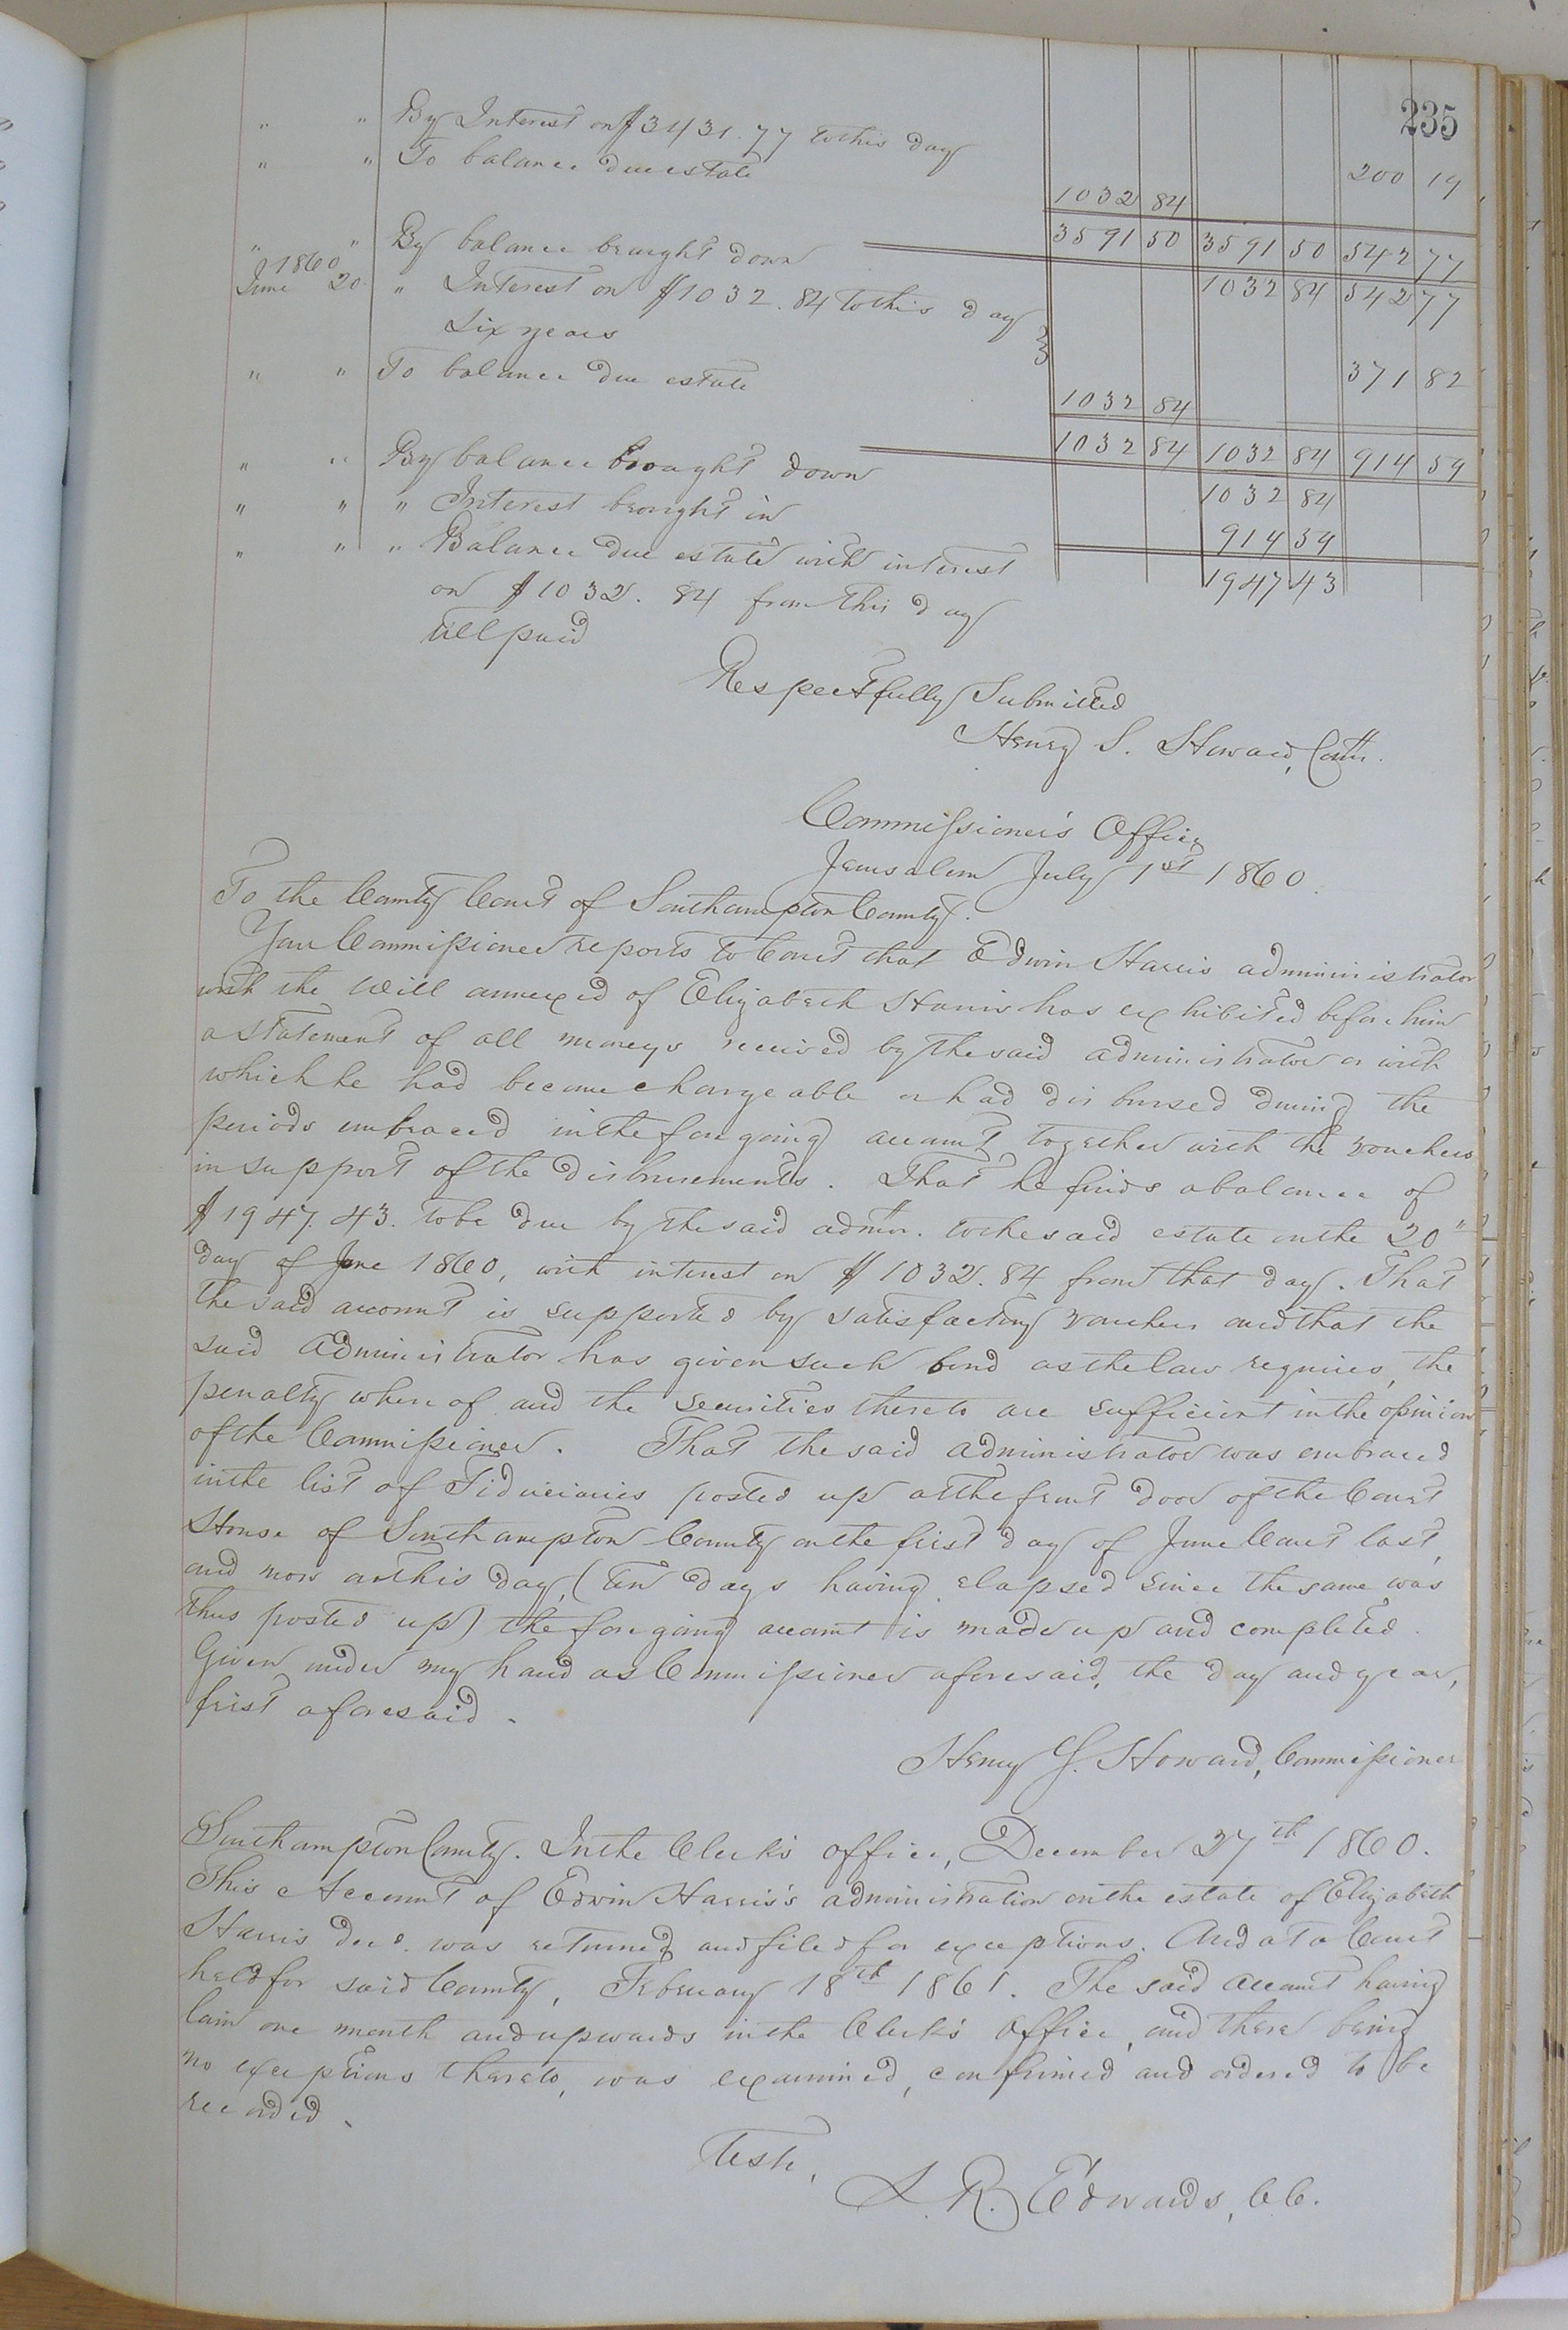 235
" " By Interest on $3431.77 to this day 200 19
" " To balance due estate 1032 84
3591 50 3591 50 542 77
" " By balance brought down 1032 84 542 77
1860
June 20 " Interest on $1032.84 to this day
Six years 371 82
" " To balance due estate 1032 84
1032 84 1032 84 914 59
" " By balance brought down 1032 84
" " " Interest brought in 914 59
" " " Balance due estate with interest 1947 43
on $1032.84 from this day
till paid
Respectfully Submitted
Henry S. Howard, Com.
Commissioner's Office
Jerusalem July 1st 1860.
To the County Court of Southampton County.
Your Commissioner reports to Court that Edwin Harris administrator
with the Will annexed of Elizabeth Harris has exhibited before him
a statement of all moneys received by the said administrator or with
which he had become chargeable or had disbursed during the
periods embraced in the foregoing account, together with the vouchers
in support of the disbursements. That he finds a balance of
$1947.43. to be due by the said admor. to the said estate on the 20"
day of June 1860, with interest on $1032.84 from that day. That
the said account is supported by satisfactory vouchers and that the
said Administrator has given such bond as the law requires, the
penalty whereof and the securities thereto are sufficient in the opinion
of the Commissioner. That the said administrator was embraced
in the list of Fiduciaries posted up at the front door of the Court
House of Southampton County on the first day of June Court last,
and now on this day, (ten days having elapsed since the same was
thus posted up) the foregoing account is made up and completed.
Given under my hand as Commissioner aforesaid, the day and year,
first aforesaid.
Henry S. Howard, Commissioner
Southampton County. In the Clerk's office, December 27th 1860.
This Account of Edwin Harris's administration on the estate of Elizabeth
Harris decd. was returned and filed for exceptions. And at a Court
held for said County, February 18th 1861. The said account having
lain one month and upwards in the Clerk's Office, and there being
no exceptions thereto, was examined, confirmed and ordered to be
recorded.
Teste,
L. R. Edwards, CC.